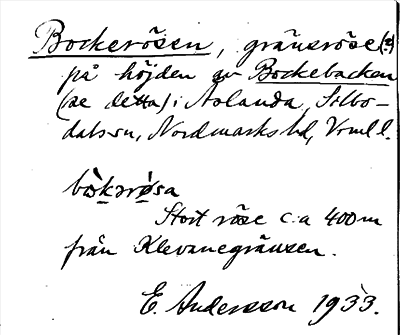 Bockerösen, gränsröse(?)
på höjden av Bockebacken
(se detta) i Aolanda, Silbo-
dals sn, Nordmarks hd, Vrml l.
bò̀kərø̀sa
Stort röse c:a 400 m
från Klevanegränsen.
E. Andersson 1933.